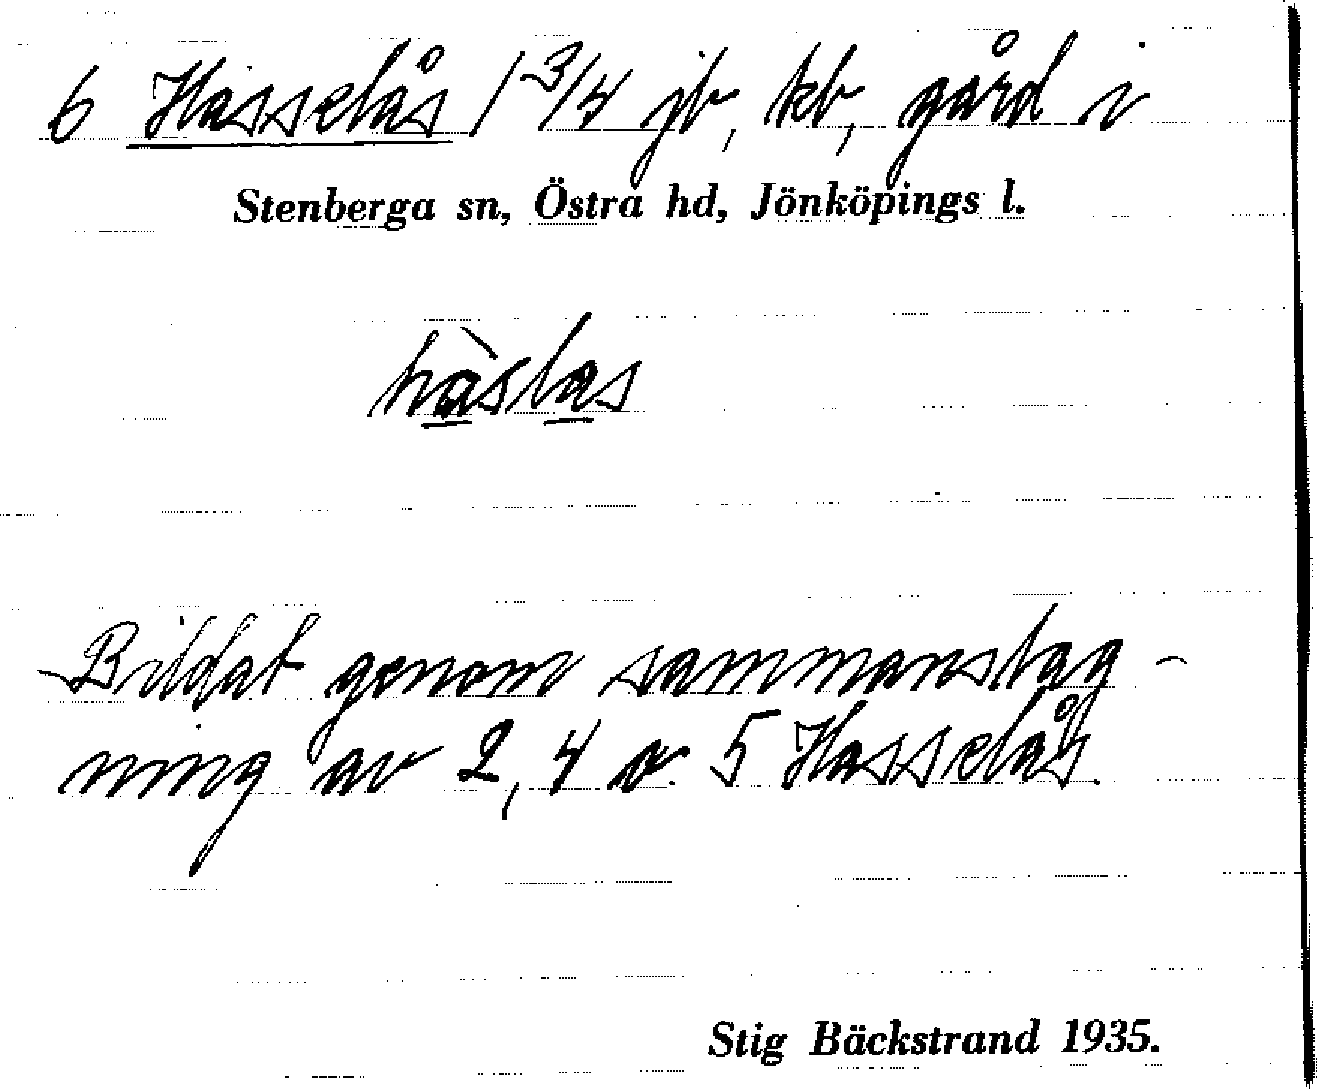 6 Hasselås 1 3/4 jb, kb, gård i
Stenberga sn, Östra hd, Jönköpings l.
hàslas
Bildat genom sammanslag-
ning av 2, 4 o. 5 Hasselås.
Stig Bäckstrand 1935.